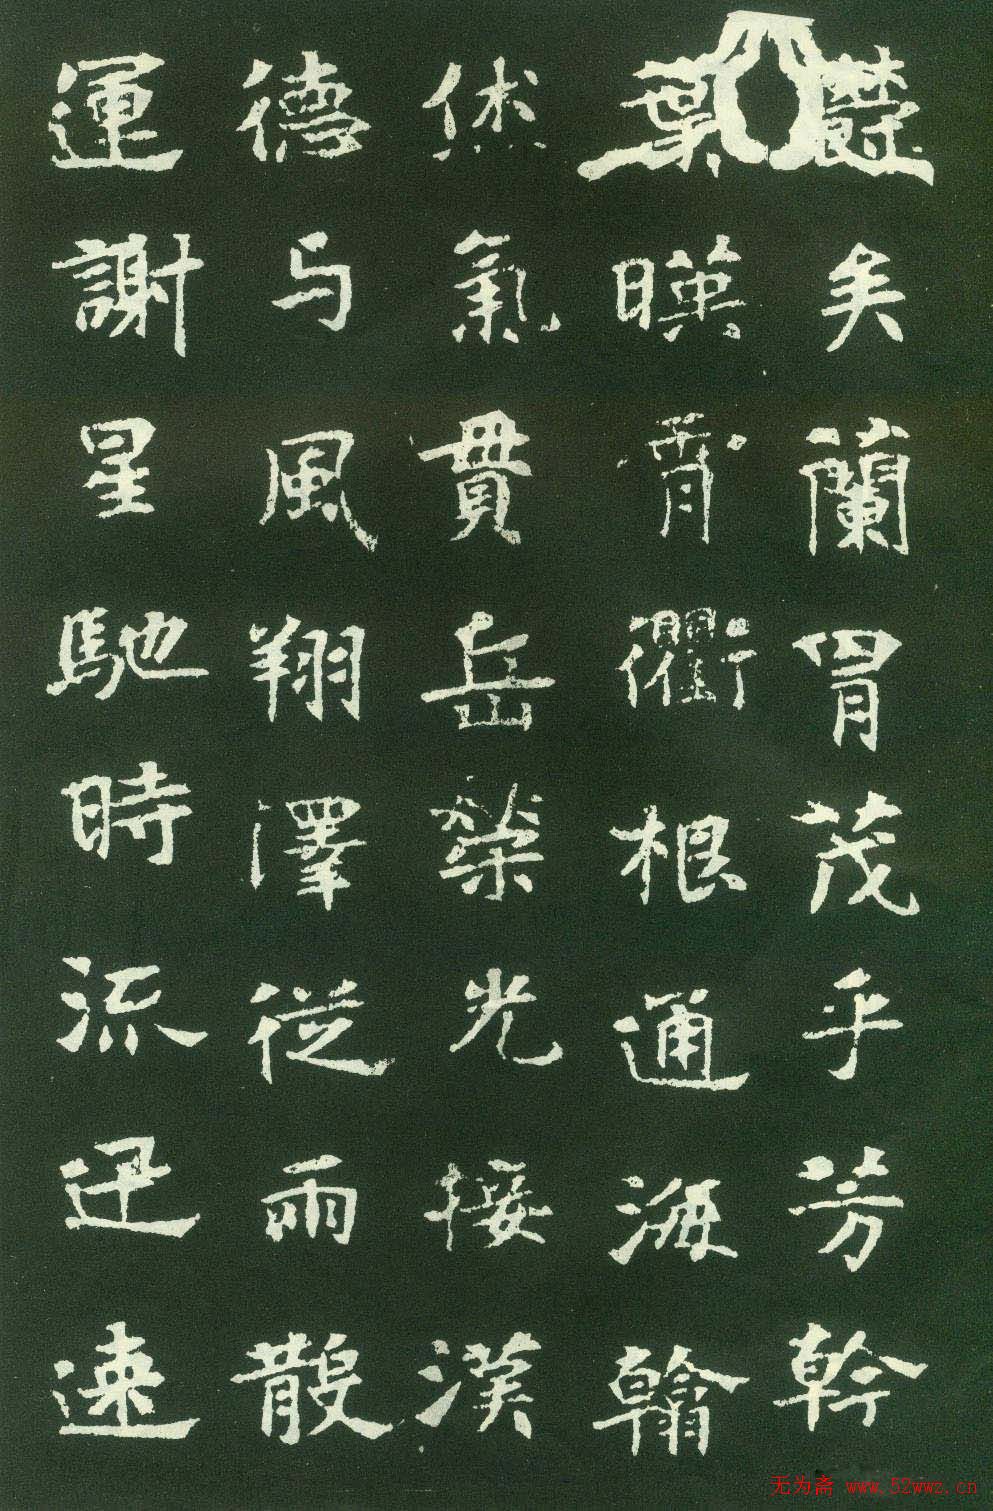 矣蘭胄茂乎芳幹
葉暎霄衢根通海翰
烋氣貫岳榮光接漢
德与風翔澤從雨散
運謝星馳時流迅速
无为斋 www.52wwz.cn